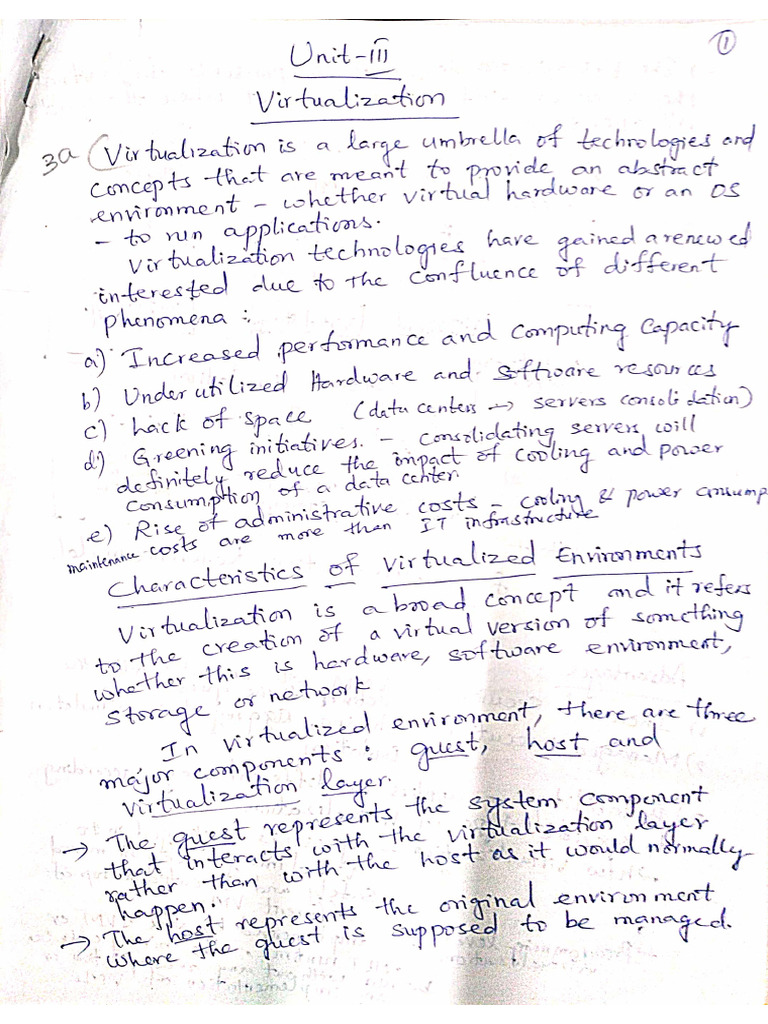 1
Unit-III
Virtualization
3a Virtualization is a large umbrella of technologies and
concepts that are meant to provide an abstract
environment - whether virtual hardware or an OS
- to run applications.
Virtualization technologies have gained a renewed
interested due to the confluence of different
phenomena :
a) Increased performance and computing capacity
b) Underutilized Hardware and Software resources
c) Lack of space (data centers → servers consolidation)
d) Greening initiatives. - consolidating servers will
definitely reduce the impact of cooling and power
consumption of a data center.
e) Rise of administrative costs - cooling & power consump
maintenance costs are more than IT infrastructure
Characteristics of Virtualized Environments
Virtualization is a broad concept and it refers
to the creation of a virtual version of something
whether this is hardware, software environment,
storage or network
In virtualized environment, there are three
major components : guest, host and
virtualization layer.
→ The guest represents the system component
that interacts with the virtualization layer
rather than with the host as it would normally
happen.
→ The host represents the original environment
where the guest is supposed to be managed.